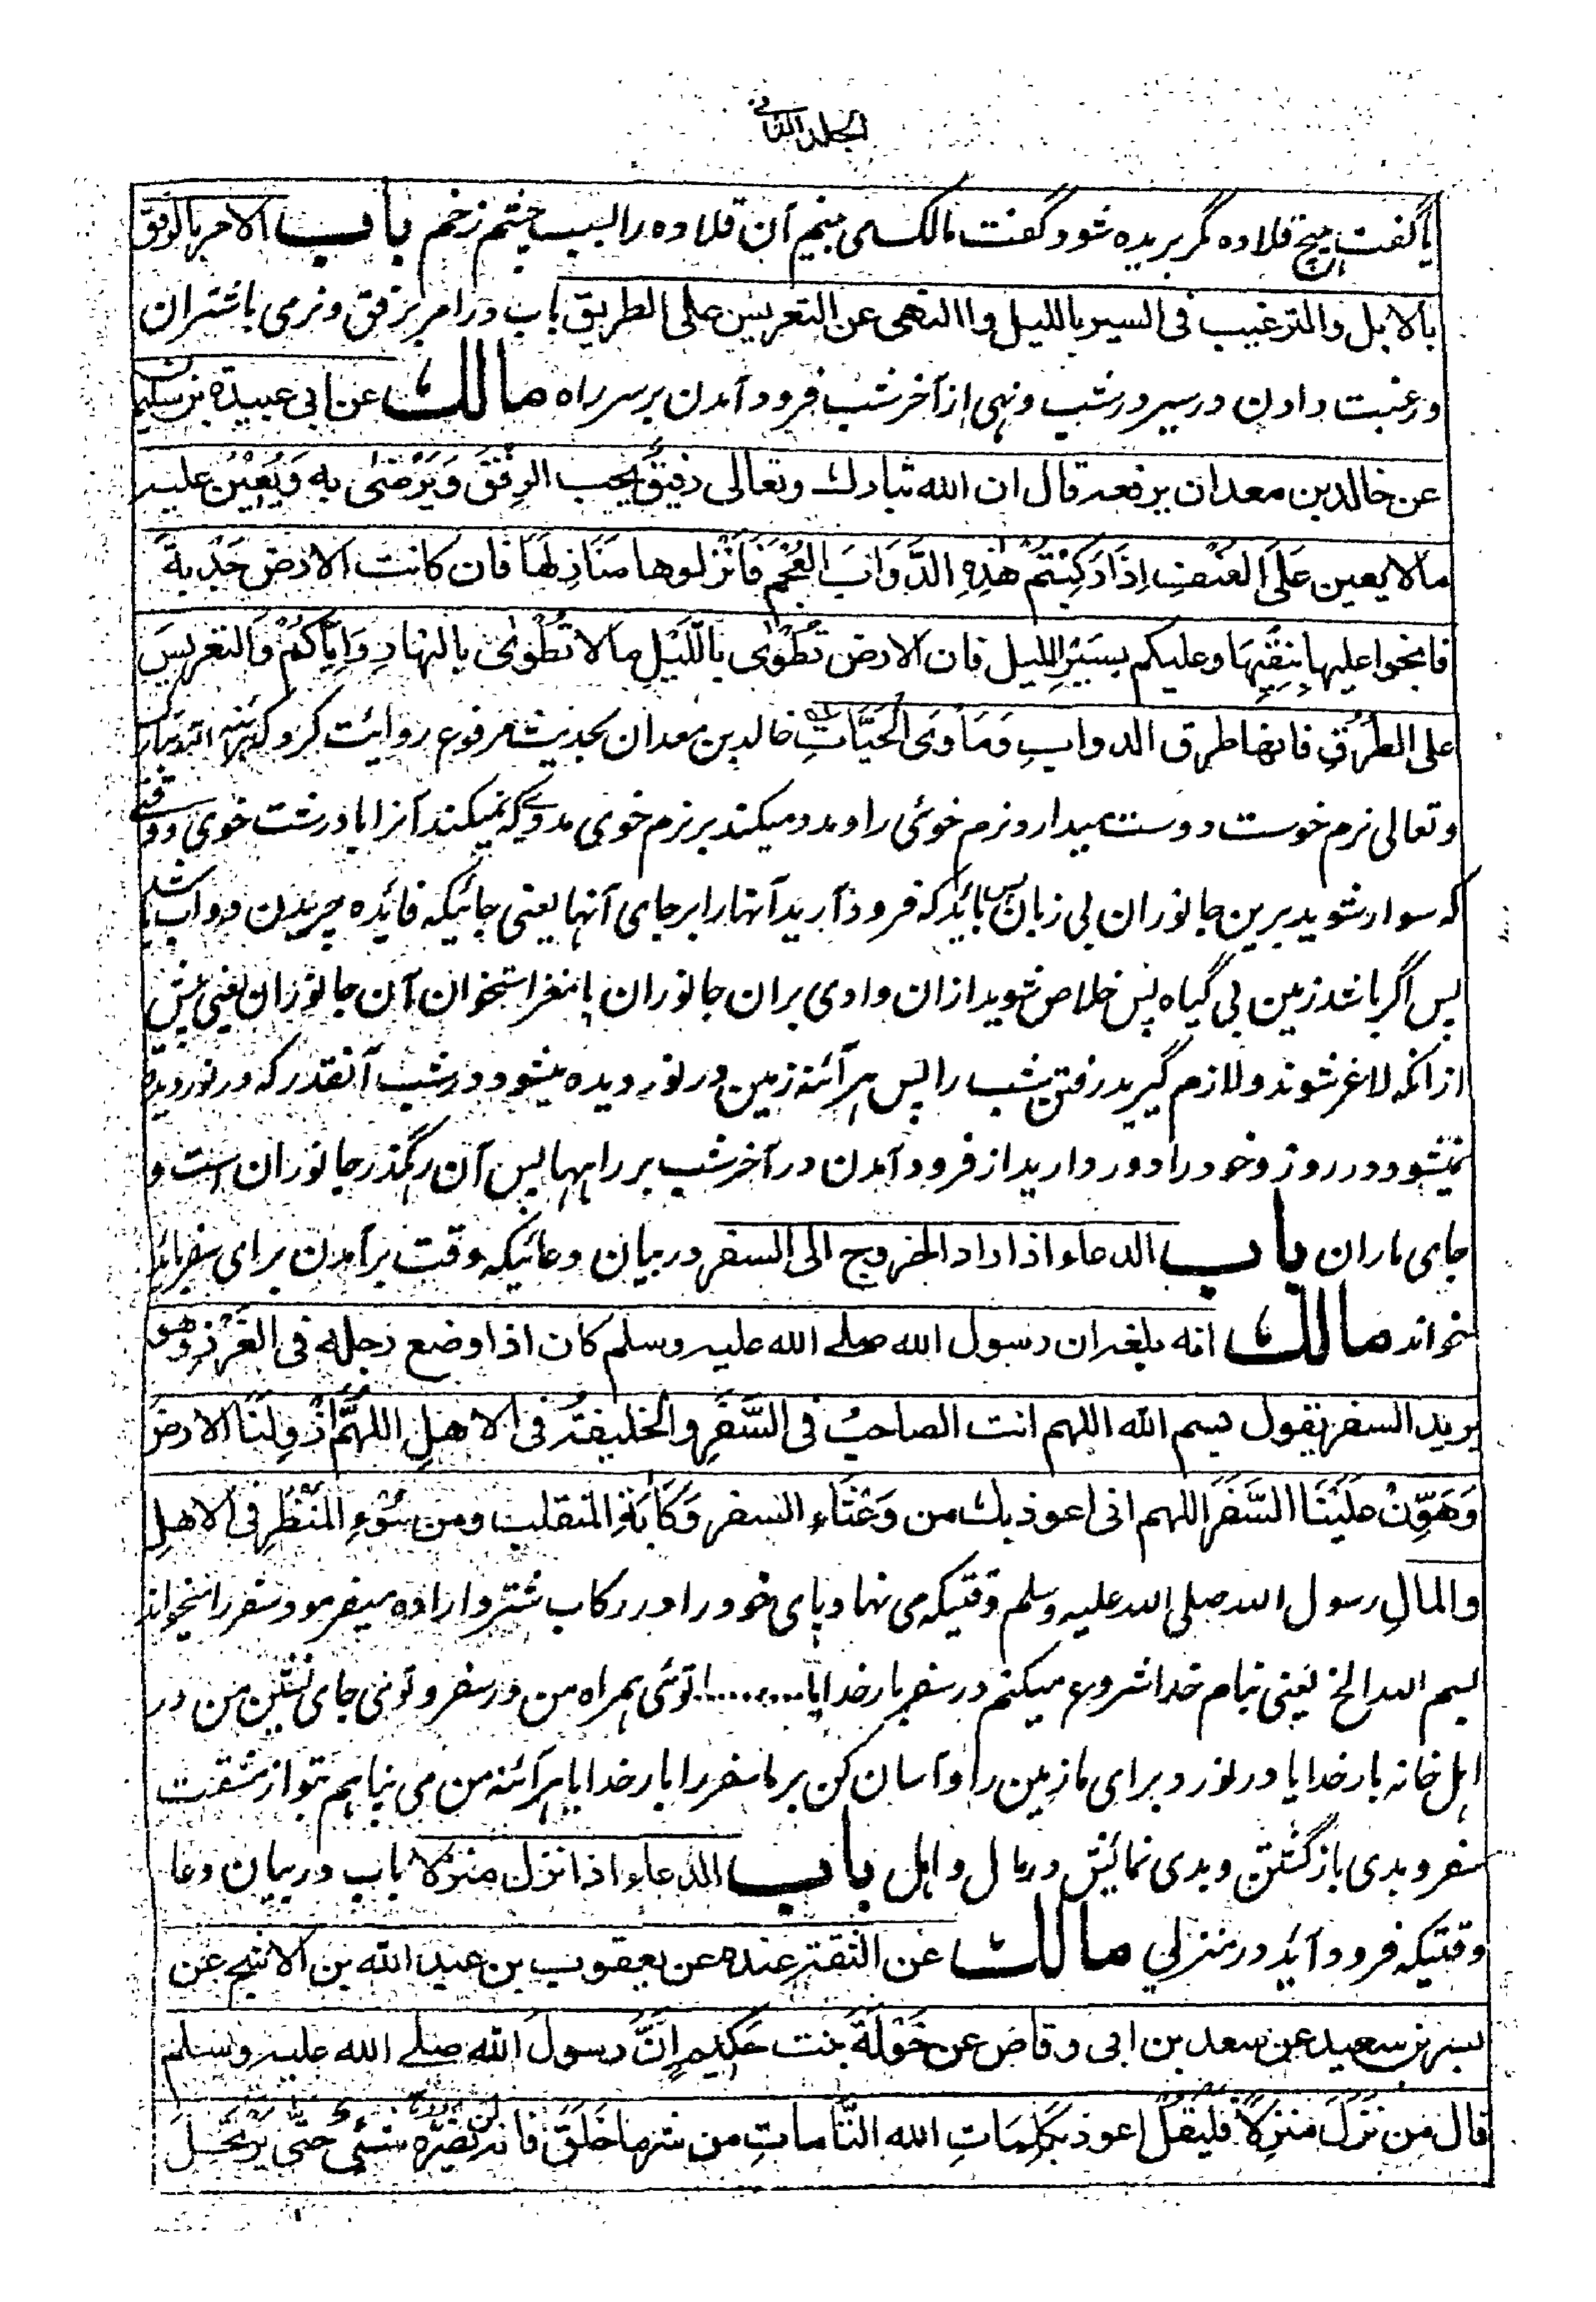 الجلد الثانی
یا گفت هیچ قلاده مگر بریده شود گفت مالک می بینم آن قلاده را بسبب چشم زخم باب الامر بالرفق
بالابل والترغیب فی السیر باللیل واالنهی عن التعریس علی الطریق باب در امر برفق و نرمی باشتران
و رغبت دادن در سیر در شب و نهی از آخر شب فرود آمدن بر سر راه مالك عن ابی عبیدة بن سلیمن
عن خالد بن معدان یرفعه قال ان الله تبارك وتعالی رفیقٌ یحب الرِفْقَ وَیَرْضٰی به وَیُعِیْنُ علیه
مالا یعین عَلَی العُنْفِ اِذَا رَکِبْتُمْ هٰذِهِ الدَّوَابَ العُجْمَ فَانْزِلوها مَنَازِلَهَا فان کانت الارض جَدْبةً
فانجوا علیها بِنِقْیِهَا وعلیکم بسَیْرِ اللیل فان الارض تُطْوٰی بالَّلیْلِ مالا تُطْوٰی بالنهارِ وَاِیَّاکُمْ وَالتعریسَ
علی الطُرُقِ فانها طرق الدوابِ وَمَاْوَی الحَیَّاتِ خالد بن معدان بحدیث مرفوع روایت کرد که هرآئنه الله تبارک
و تعالی نرم خوست دوست میدارد نرم خوئی را و مدد میکند بر نرم خوی مددے که نمیکند آنرا با درشت خوی و وقتے
که سوار شوید برین جانوران بی زبان پس باید که فرود آرید آنها را بر جای آنها یعنی جائیکه فائده چریدن دواب باشد
پس اگر باشد زمین بی گیاه پس خلاص شوید ازان وادی بران جانوران با مغز استخوان آن جانوران یعنی پیش
ازانکه لاغر شوند و لازم گیرید رفتن شب را پس هرآئنه زمین در نوردیده میشود در شب آنقدر که در نوردیده
نمیشود در روز و خود را دور دارید از فرود آمدن در آخر شب بر راهها پس آن رهگذر جانوران است و
جای ماران باب الدعاء اذا اراد الخروج الی السفر در بیان دعائیکه وقت برآمدن برای سفر باید
خواند مالك انه بلغه ان رسول الله صلے الله علیه وسلم کان اذا وضع رجله فی الغَرْزِ وهو
یرید السفر یقول بسم الله اللهم انت الصاحبُ فی السَّفَرِ والخلیفةُ فی الاهلِ اللهُمَّ اَزْوِلَنَا الارضَ
وَهَوِّنْ عَلَیْنَا السَّفَرَ اللهم انی اعوذ بك من وَعْثَاءِ السفر وَکَآبَةِ المنقلب ومن سُوْءِ المَنْظَرِ فی الاهلِ
والمالِ رسول الله صلی الله علیه وسلم وقتیکه می نهاد پای خود را در رکاب شتر و اراده میفرمود سفر را میخواند
بسم الله الخ یعنی بنام خدا شروع میکنم در سفر بار خدایا ........ توئی همراه من در سفر و توئی جای نشین من در
اهل خانه بار خدایا در نورد برای ما زمین را و آسان کن بر ما سفر را بار خدایا هرآئنه من می پناهم بتو از مشقت
سفر و بدی بازگشتن و بدی نمائش در مال و اهل باب الدعاء اذا نزل منزلا باب در بیان دعا
وقتیکه فرود آید در منزلے مالك عن الثقة عنده عن یعقوب بن عبد الله بن الاشج عن
بسر بن سعید عن سعد بن ابی وقاص عن خَوْلَةَ بنت حَکِیمٍ اِنَّ رسولَ الله صلے الله علیه وسلم
قال مَن نَزَلَ منزِلاً فلیقُلْ اعوذ بکَلِمَاتِ الله التَّاماتِ من شر ما خَلَقَ فانه لن یضره شیءٌ حتّٰی یَرْتَحِلَ